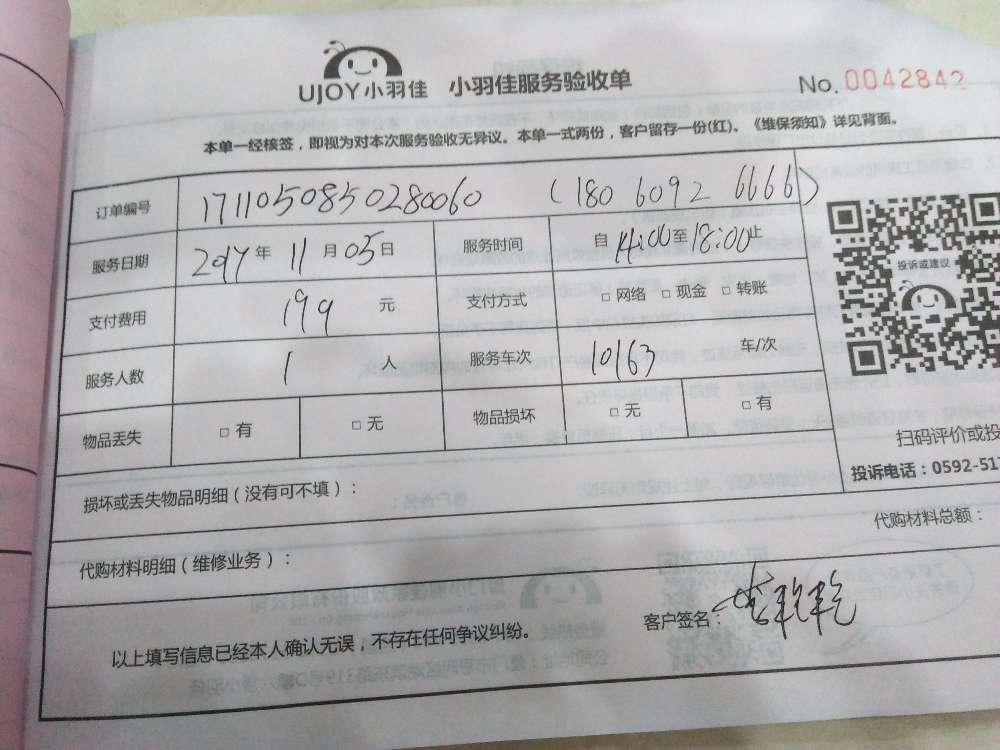 UJOY小羽佳 小羽佳服务验收单 No. 0042842
本单一经核签，即视为对本次服务验收无异议。本单一式两份，客户留存一份(红)。《维保须知》详见背面。
订单编号 1711050850280060 (180 6092 6666)
服务日期 2017 年 11 月 05 日 服务时间 自 14:00 至 18:00 止
投诉或建议
支付费用 199 元 支付方式 □ 网络 □ 现金 □ 转账
服务人数 1 人 服务车次 10163 车/次
物品丢失 □ 有 □ 无 物品损坏 □ 无 □ 有
扫码评价或投
投诉电话：0592-517
损坏或丢失物品明细（没有可不填）：
代购材料总额：
代购材料明细（维修业务）：
客户签名：
以上填写信息已经本人确认无误，不存在任何争议纠纷。